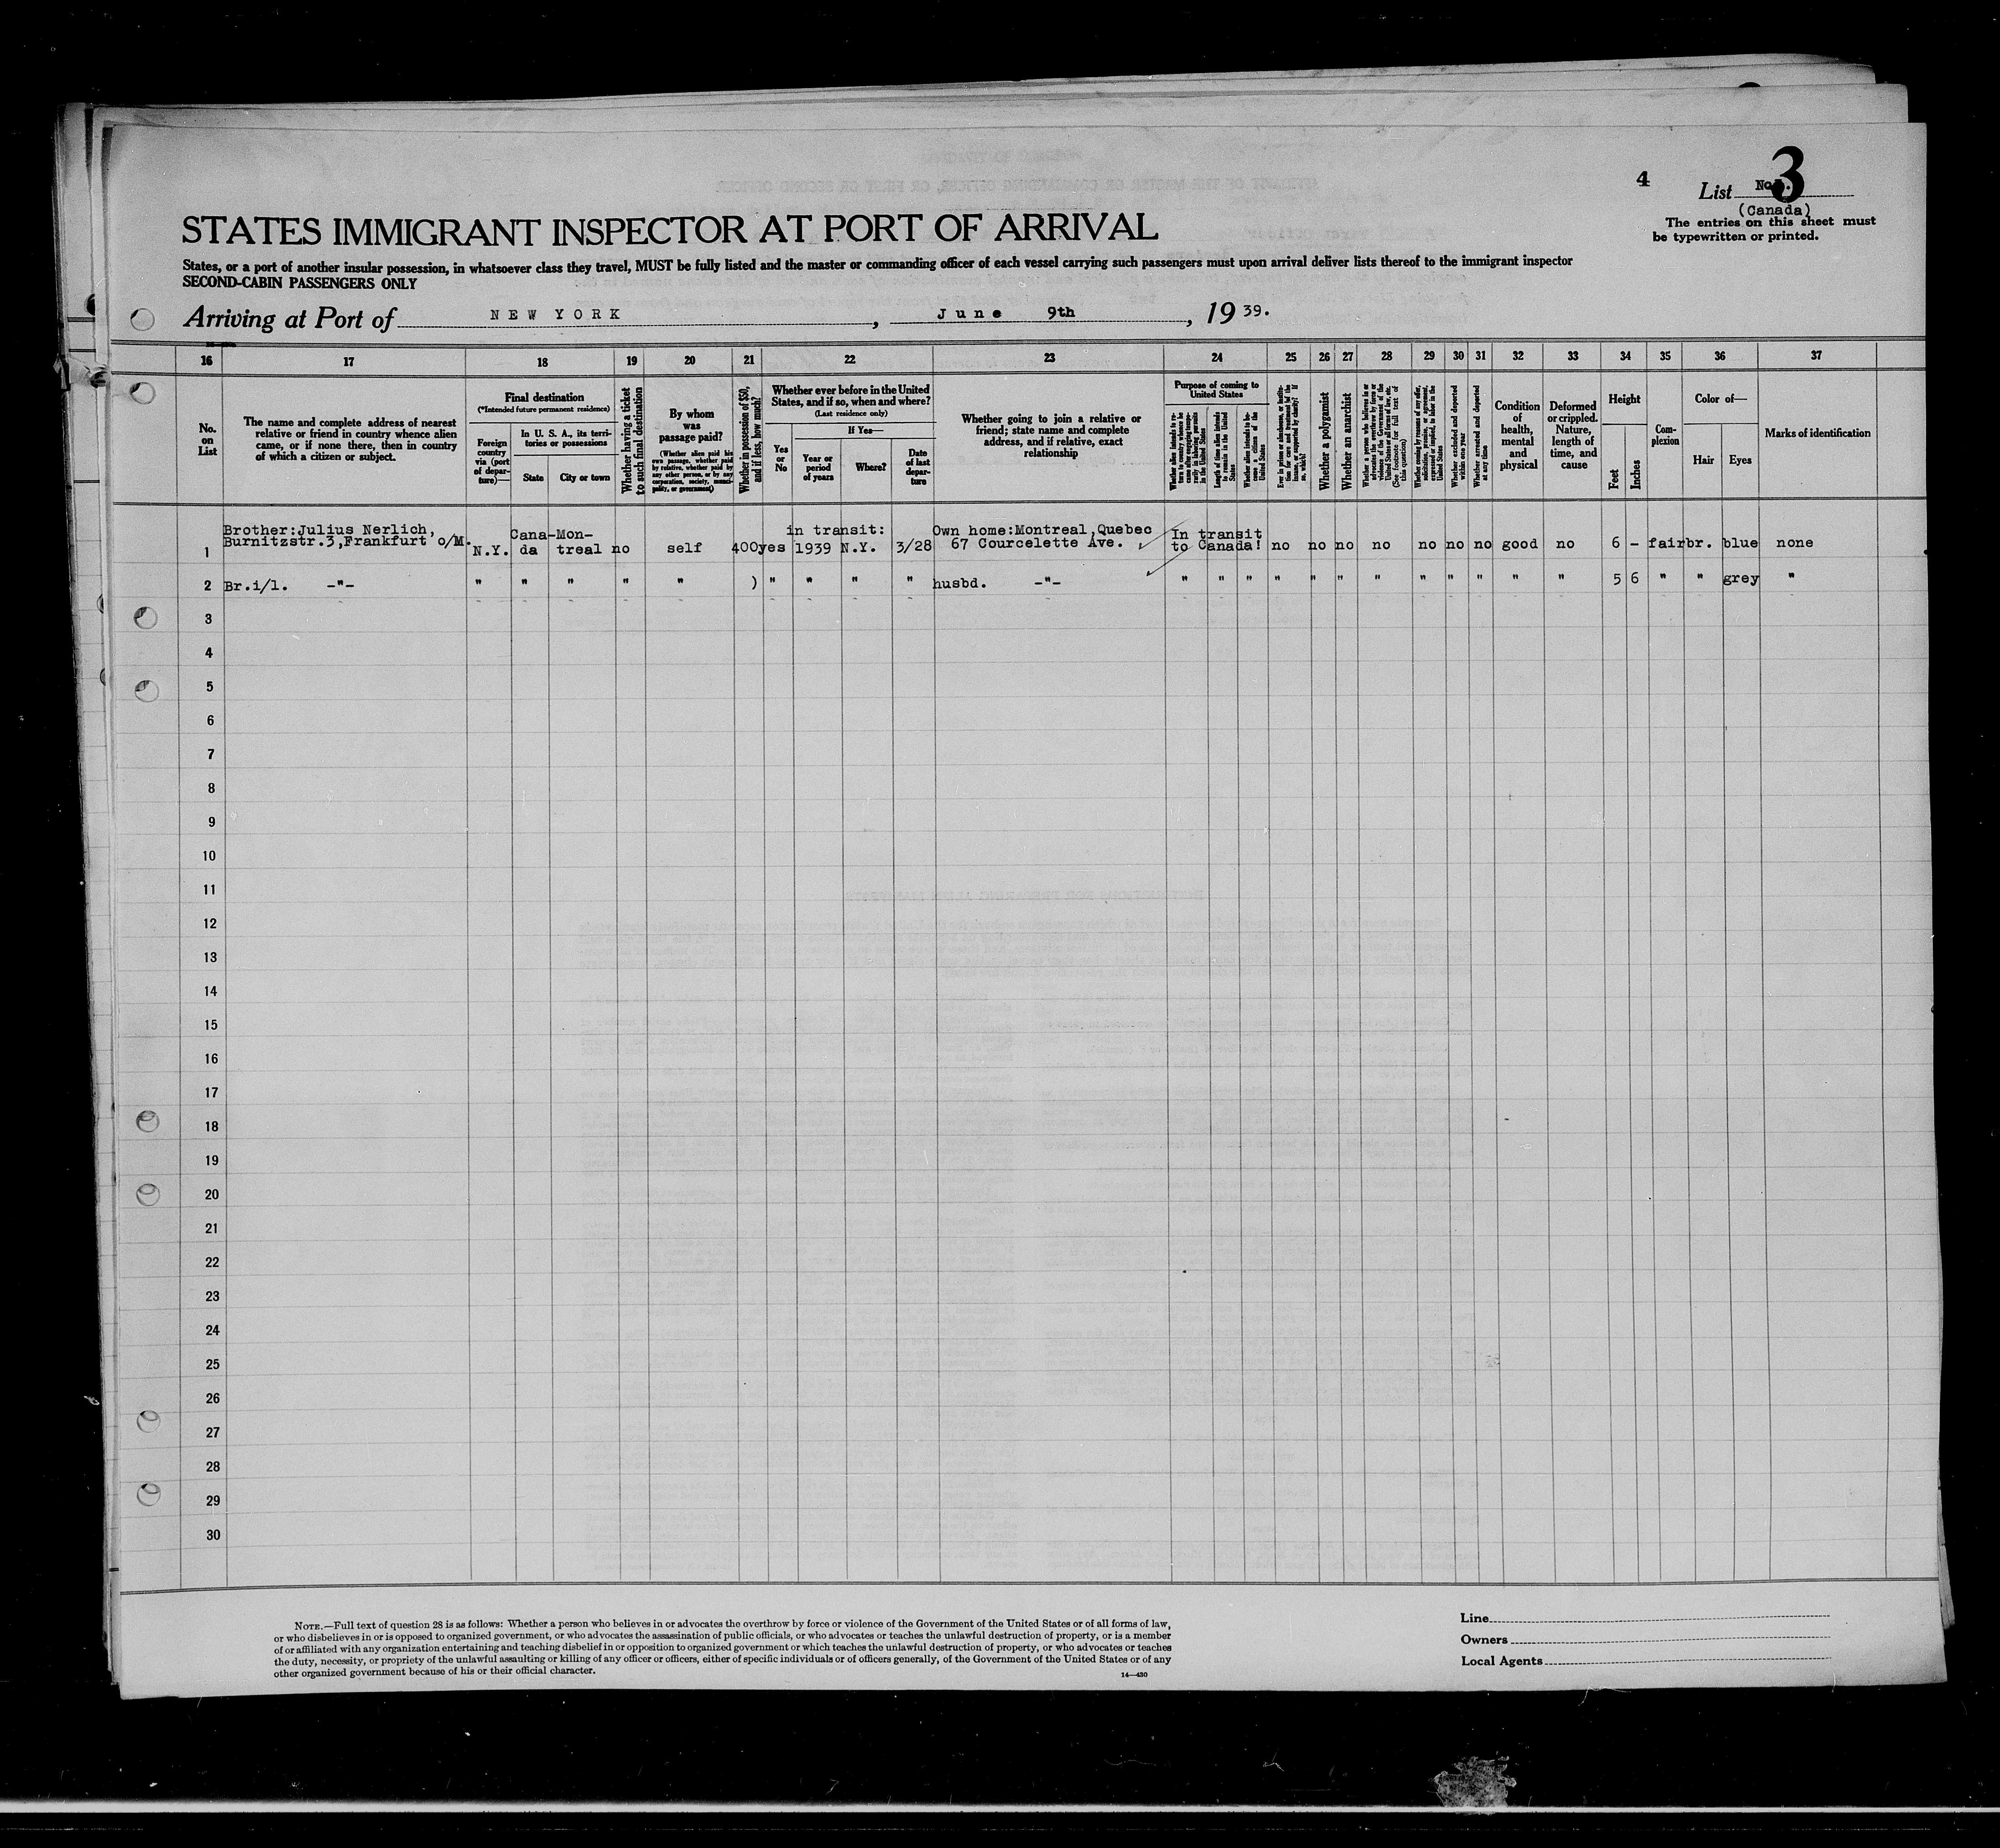 4
List No. 3
(Canada)
The entries on this sheet must
be typewritten or printed.
STATES IMMIGRANT INSPECTOR AT PORT OF ARRIVAL
States, or a port of another insular possession, in whatsoever class they travel, MUST be fully listed and the master or commanding officer of each vessel carrying such passengers must upon arrival deliver lists thereof to the immigrant inspector
SECOND-CABIN PASSENGERS ONLY
Arriving at Port of NEW YORK, June 9th, 1939.
16 17 18 19 20 21 22 23 24 25 26 27 28 29 30 31 32 33 34 35 36 37
No.
on
List
The name and complete address of nearest
relative or friend in country whence alien
came, or if none there, then in country
of which a citizen or subject.
Final destination
(*Intended future permanent residence)
Foreign
country
via (port
of depar-
ture)—
In U. S. A., its terri-
tories or possessions
State
City or town
Whether having a ticket
to such final destination
By whom
was
passage paid?
(Whether alien paid his
own passage, whether paid
by relative, whether paid by
any other person, or by any
corporation, society, munici-
pality, or government)
Whether in possession of $50,
and if less, how much?
Whether ever before in the United
States, and if so, when and where?
(Last residence only)
Yes
or
No
If Yes—
Year or
period
of years
Where?
Date
of last
depar-
ture
Whether going to join a relative or
friend; state name and complete
address, and if relative, exact
relationship
Purpose of coming to
United States
Whether alien intends to re-
turn to country whence he
came after engaging tempo-
rarily in laboring pursuits
in the United States
Length of time alien intends
to remain in the United
States
Whether alien intends to be-
come a citizen of the
United States
Ever in prison or almshouse, or institu-
tion for care and treatment of the
insane, or supported by charity? If
so, which?
Whether a polygamist
Whether an anarchist
Whether a person who believes in or
advocates the overthrow by force or
violence of the Government of the
United States or all forms of law, etc.
(See footnote for full text of
this question)
Whether coming by reason of any offer,
solicitation, promise, or agreement,
expressed or implied, to labor in the
United States
Whether excluded and deported
within one year
Whether arrested and deported
at any time
Condition
of
health,
mental
and
physical
Deformed
or crippled.
Nature,
length of
time, and
cause
Height
Feet
Inches
Com-
plexion
Color of—
Hair
Eyes
Marks of identification
Brother:Julius Nerlich, Cana-Mon- in transit: Own home:Montreal,Quebec In transit
1 Burnitzstr.3,Frankfurt o/M. N.Y. da treal no self 400 yes 1939 N.Y. 3/28 67 Courcelette Ave. to Canada! no no no no no no no good no 6 - fair br. blue none
2 Br.i/l. -"- " " " " " ) " " " " husbd. -"- " " " " " " " " " " " " 5 6 " " grey "
3
4
5
6
7
8
9
10
11
12
13
14
15
16
17
18
19
20
21
22
23
24
25
26
27
28
29
30
NOTE.—Full text of question 28 is as follows: Whether a person who believes in or advocates the overthrow by force or violence of the Government of the United States or of all forms of law,
or who disbelieves in or is opposed to organized government, or who advocates the assassination of public officials, or who advocates or teaches the unlawful destruction of property, or is a member
of or affiliated with any organization entertaining and teaching disbelief in or opposition to organized government or which teaches the unlawful destruction of property, or who advocates or teaches
the duty, necessity, or propriety of the unlawful assaulting or killing of any officer or officers, either of specific individuals or of officers generally, of the Government of the United States or of any
other organized government because of his or their official character.
14—430
Line
Owners
Local Agents